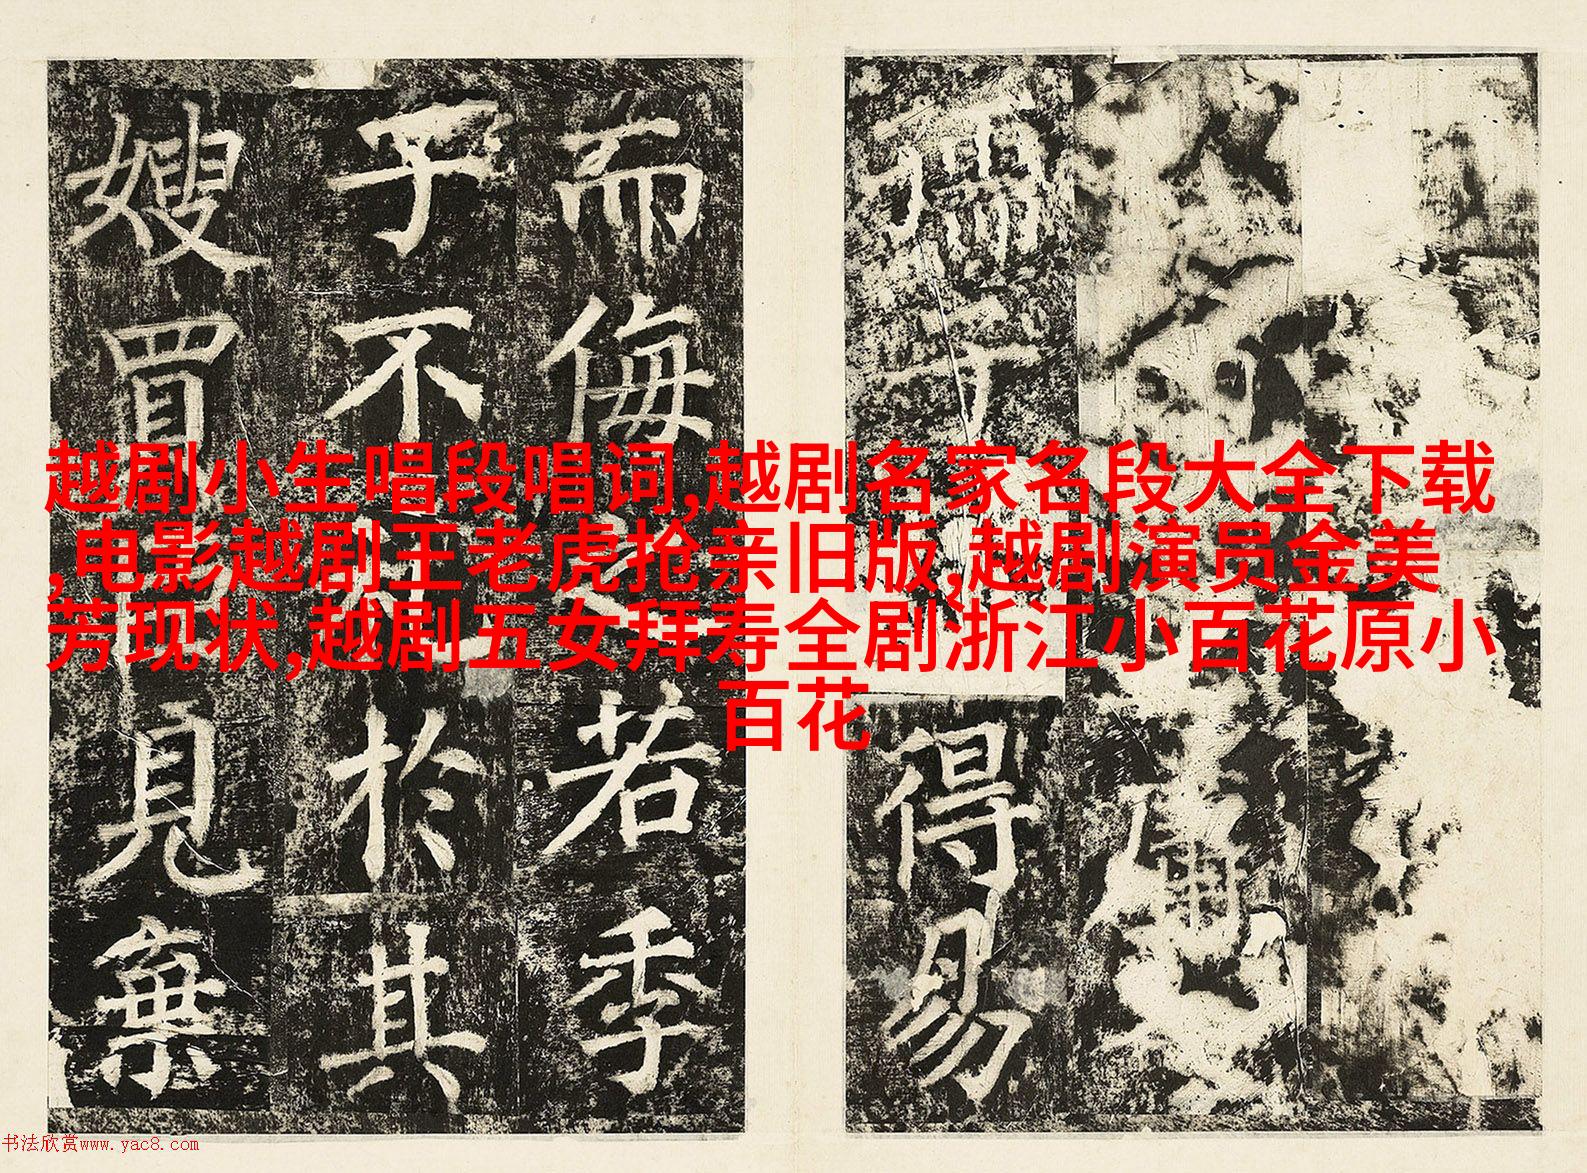 越剧小生唱段唱词,越剧名家名段大全下载
,电影越剧王老虎抢亲旧版,越剧演员金美
芳现状,越剧五女拜寿全剧浙江小百花原小
百花
得易
而侮若季
子不於其
嫂買見棄
书法欣赏www.yac8.com